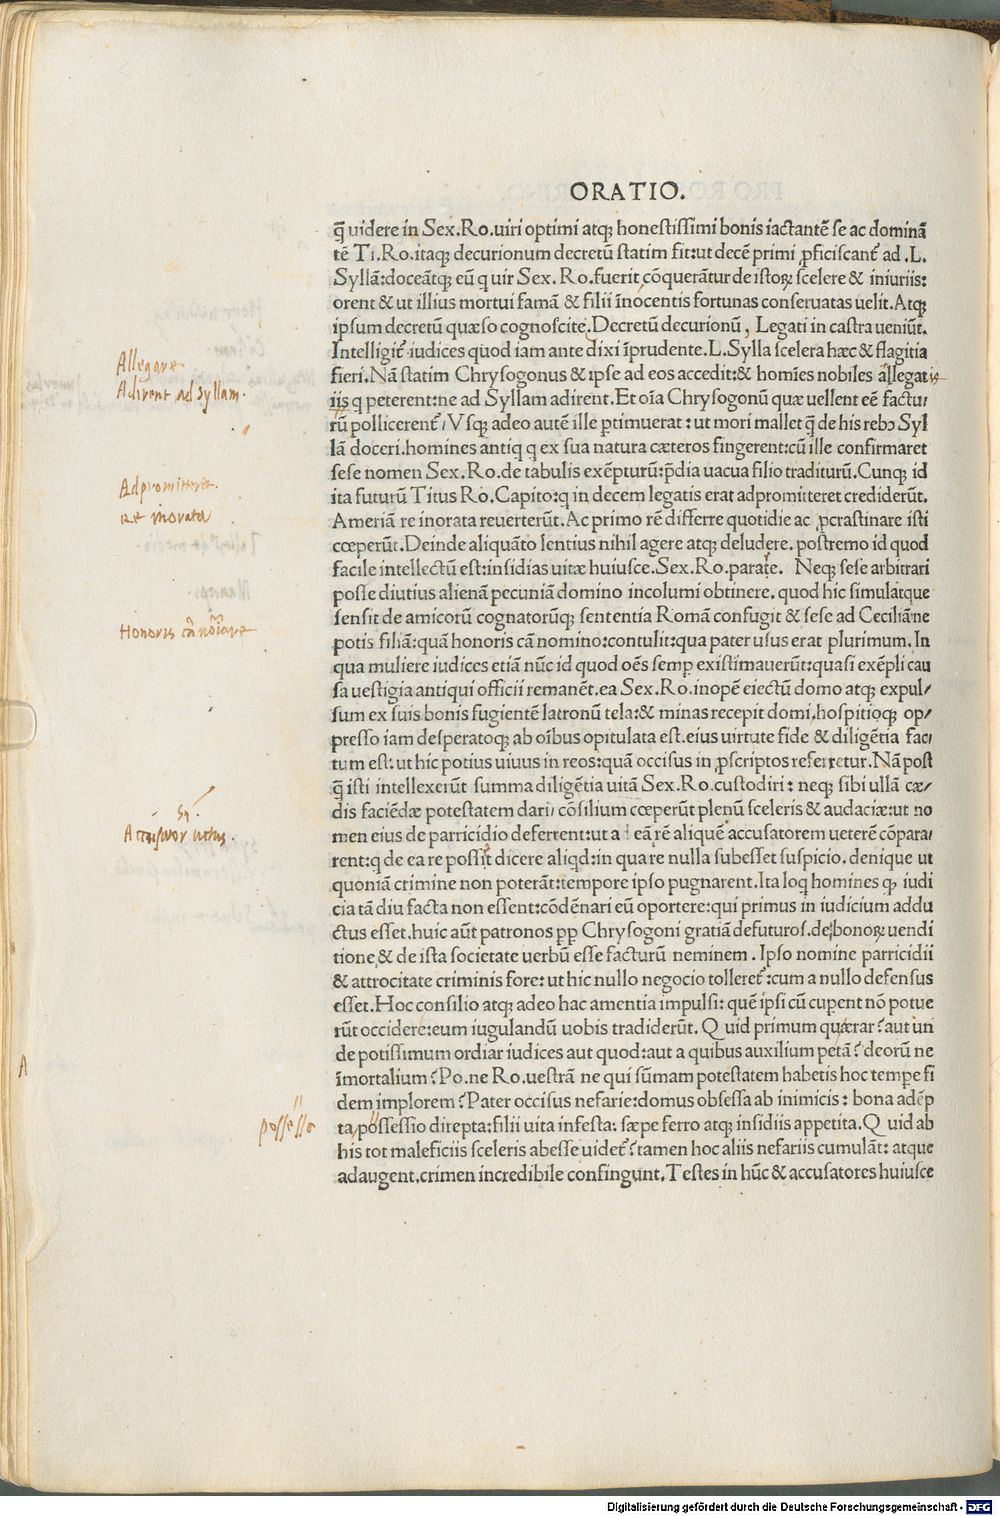 ORATIO.
q̄ uidere in Sex.Ro.uiri optimi atq; honestissimi bonis iactantē se ac dominā
tē Ti.Ro.itaq; decurionum decretū statim fit:ut decē primi ꝓficiscant᷑ ad .L.
Syllā:doceātq; eū q uir Sex. Ro.fuerit,cōquerātur de istoꝝ scelere & iniuriis:
orent & ut illius mortui famā & filii īnocentis fortunas conseruatas uelit.Atq;
ipsum decretū quæso cognoscite.Decretū decurionū, Legati in castra ueniūt.
Intelligit᷑ iudices quod iam ante dixi īprudente.L.Sylla scelera hæc & flagitia
fieri.Nā statim Chrysogonus & ipse ad eos accedit:& homīes nobiles allegatis
Allegare
iis q peterent:ne ad Syllam adirent.Et oīa Chrysogonū quæ uellent eē factu/
Adirent ad Syllam.
rū pollicerent᷑/Vsq; adeo autē ille ꝑtimuerat: ut mori mallet q̄ de his rebꝰ Syl
lā doceri.homines antiq q ex sua natura cæteros fingerent:cū ille confirmaret
sese nomen Sex.Ro.de tabulis exēpturū:p̄dia uacua filio traditurū.Cunq; id
ita futurū Titus Ro.Capito:q in decem legatis erat adpromitteret crediderūt.
Adpromittere.
Ameriā re inorata reuerterūt.Ac primo rē differre quotidie ac ꝓcrastinare isti
re inorata
cœperūt.Deinde aliquāto lentius nihil agere atq; deludere.postremo id quod
facile intellectū est:insidias uitæ huiusce.Sex.Ro.parare. Neq; sese arbitrari
posse diutius alienā pecuniā domino incolumi obtinere.quod hic simulatque
sensit de amicorū cognatorūq; sententia Romā confugit & sese ad Ceciliā ne
potis filiā:quā honoris cā nomino:contulit:qua pater usus erat plurimum.In
Honoris cā noīare
qua muliere iudices etiā nūc id quod oēs semꝑ existimauerūt:quasi exēpli cau
sa uestigia antiqui officii remanēt.ea Sex.Ro.inopē eiectū domo atq; expul/
sum ex suis bonis fugientē latronū tela:& minas recepit domi.hospitioq; op/
presso iam desperatoq; ab oībus opitulata est.eius uirtute fide & diligētia fac/
tum est:ut hic potius uiuus in reos:quā occisus in ꝓscriptos referretur.Nā post
q̄ isti intellexerūt summa diligētia uitā Sex.Ro.custodiri: neq; sibi ullā cæ/
dis faciēdæ potestatem dari/cōsilium cœperūt plenū sceleris & audaciæ:ut no
men eius de parricidio deferrent:ut a eā rē aliquē accusatorem ueterē cōpara/
Accusator uetus.
rent:q de ea re possit dicere aliqd:in qua re nulla subesset suspicio.denique ut
quoniā crimine non poterāt:tempore ipso pugnarent.Ita loq homines q; iudi
cia tā diu facta non essent:cōdēnari eū oportere:qui primus in iudicium addu
ctus esset.huic aūt patronos ꝓp Chrysogoni gratiā defuturos.de bonoꝝ uendi
tione & de ista societate uerbū esse facturū neminem. Ipso nomine parricidii
& attrocitate criminis fore:ut hic nullo negocio tolleret᷑:cum a nullo defensus
esset.Hoc consilio atq; adeo hac amentia impulsi: quē ipsi cū cuꝑent nō potue
rūt occidere:eum iugulandū uobis tradiderūt. Quid primum quærar?aut un
de potissimum ordiar iudices aut quod:aut a quibus auxilium petā?deorū ne
īmortalium?Po.ne Ro.uestrā ne qui sūmam potestatem habetis hoc temꝑe fi
dem implorem?Pater occisus nefarie:domus obsessa ab inimicis: bona adēp
ta,possessio direpta:filii uita infesta: sæpe ferro atq; insidiis appetita.Quid ab
possessa
his tot maleficiis sceleris abesse uidet᷑?tamen hoc aliis nefariis cumulāt: atque
adaugent.crimen incredibile confingunt.Testes in hūc & accusatores huiusce
Digitalisierung gefördert durch die Deutsche Forschungsgemeinschaft - DFG